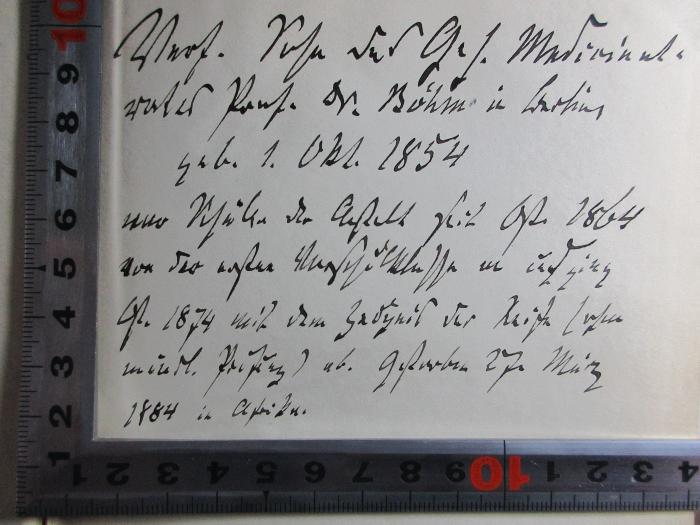 Verf. Sohn des Geh. Medicinal-
rates Prof. Dr. Böhm in Berlin,
geb. 1. Okt. 1854
war Schüler der Anstalt seit Ost. 1864
von der ersten Vorschulklasse an und ging
Ost. 1874 mit dem Zeugnis der Reife (ohne
mündl. Prüfung) ab. Gestorben 27. März
1884 in Afrika.
10 9 8 7 6 5 4 3 2 1
1 2 3 4 5 6 7 8 9 10 1 2 3 4